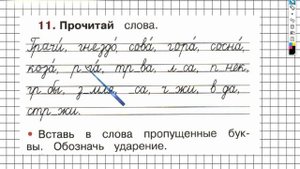 11. Прочитай слова.
Грачи́, гнездо́, сова́, гора́, сосна́,
коза́, р ка́, тр ва, л са, п нёк,
гр бы, з мля, са, ч жи, в да,
стр жи.
• Вставь в слова пропущенные бук-
вы. Обозначь ударение.